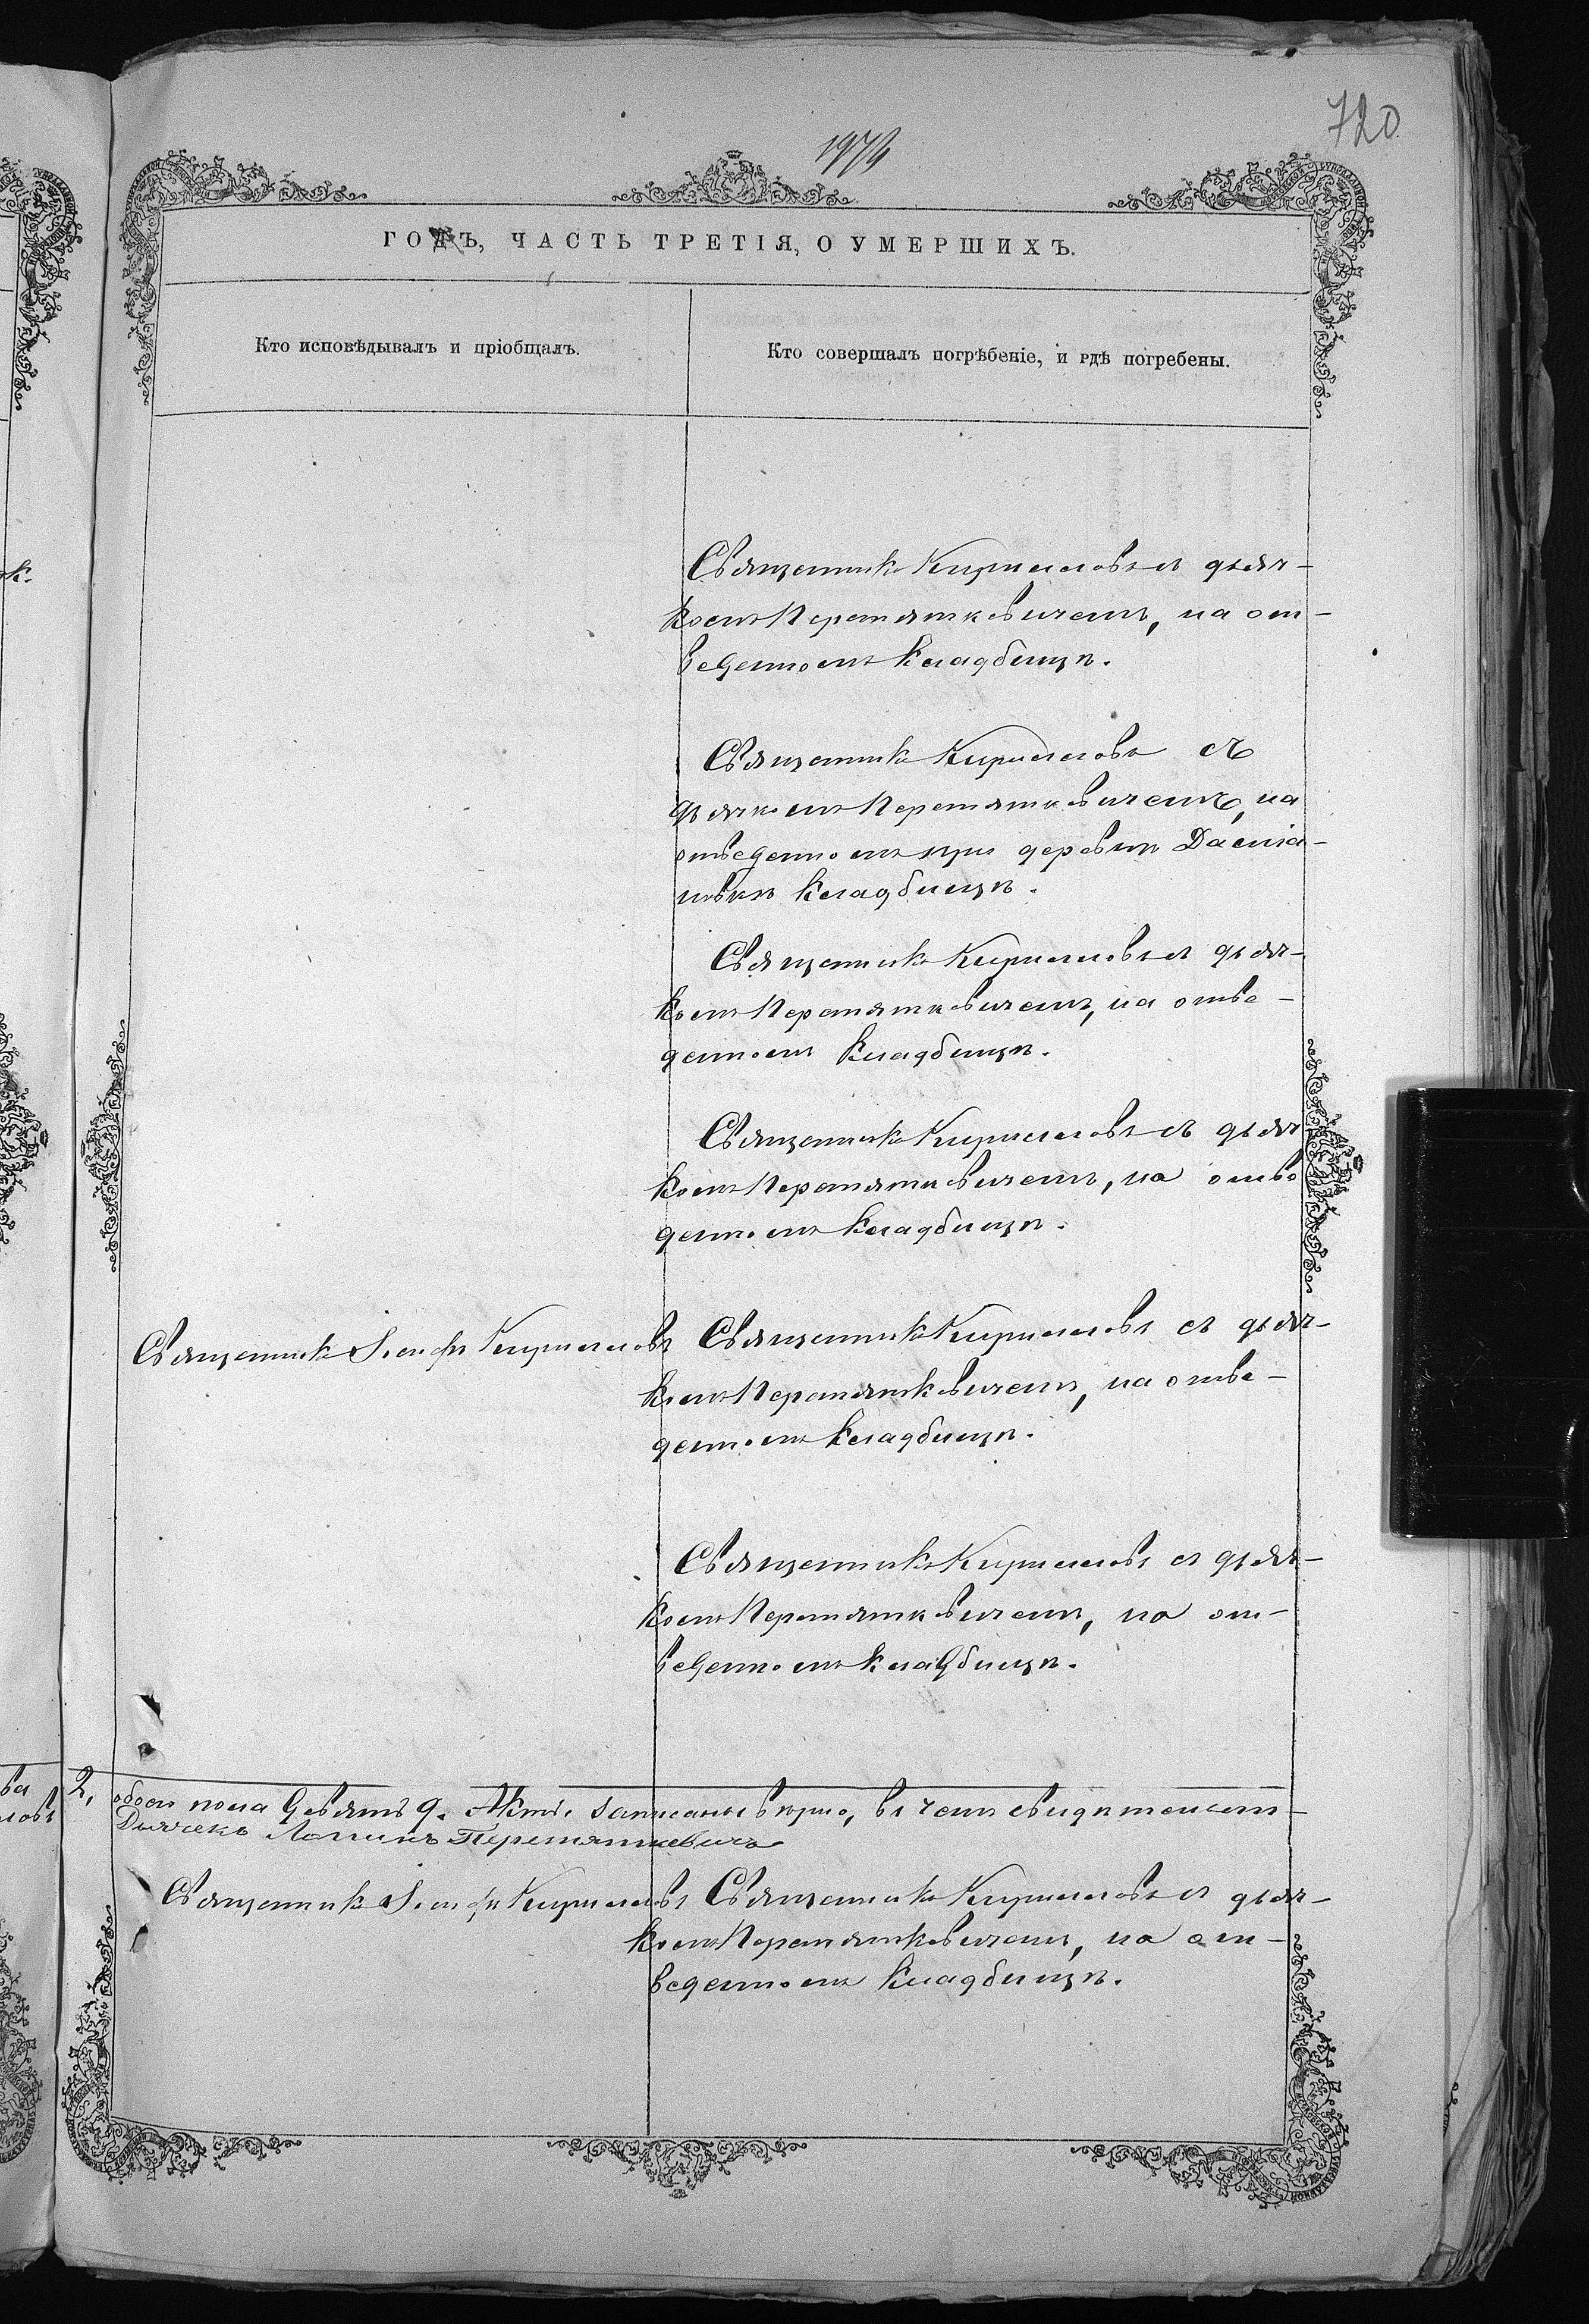 720
ГОДЪ, ЧАСТЬ ТРЕТІЯ, О УМЕРШИХЪ.
Кто исповѣдывалъ и пріобщалъ.
Кто совершалъ погрѣбеніе, и гдѣ погребены.
Священникъ Кирилловъ съ дьяч-
комъ Перетятковичемъ, на от-
веденномъ кладбищѣ.
Священникъ Кирилловъ съ
дьячкомъ Перетятковичемъ, на
отведенномъ при деревнѣ
кладбищѣ.
Священникъ Кирилловъ съ дьяч-
комъ Перетятковичемъ, на отве-
денномъ кладбищѣ.
Священникъ Кирилловъ съ дьяч
комъ Перетятковичемъ, на отве
денномъ кладбищѣ.
Священникъ Іосифъ Кирилловъ
Священникъ Кирилловъ съ дьяч-
комъ Перетятковичемъ, на отве-
денномъ кладбищѣ.
Священникъ Кирилловъ съ дьяч-
комъ Перетятковичемъ, на от-
веденномъ кладбищѣ.
2, обоего пола девять 9. Акты записаны вѣрно, въ чемъ свидѣтельст-
Дьячекъ Логинъ Перетяткевичъ
Священникъ Іосифъ Кирилловъ
Священникъ Кирилловъ съ дьяч-
комъ Перетятковичемъ, на от-
веденномъ кладбищѣ.